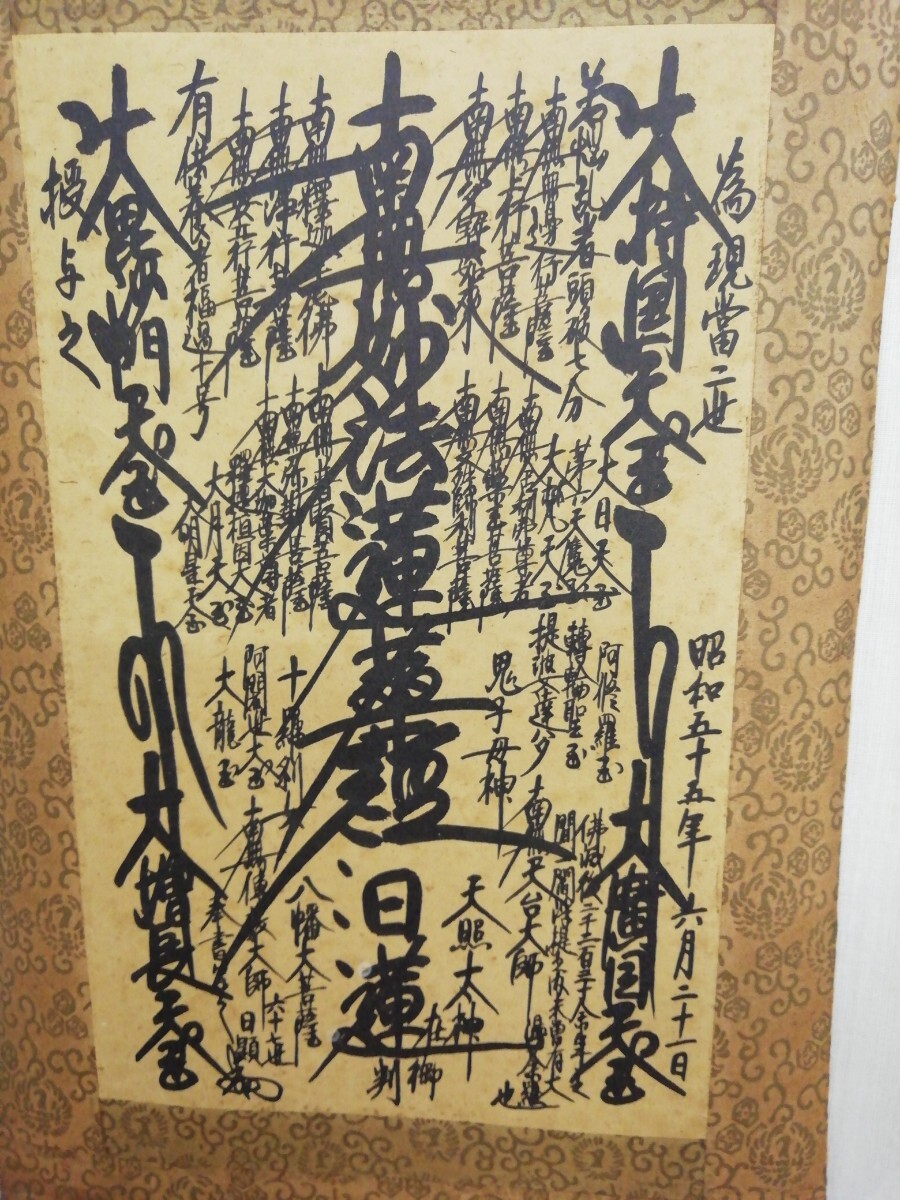 為現當二世
昭和五十五年六月二十一日
大持国天玉
大廣目天玉
若悩乱者頭破七分
南無無邊行菩薩
南無上行菩薩
南無多寳如来
大日天玉
第六天魔玉
大梵天玉
南無舎利弗尊者
南無薬王菩薩
南無文殊師利菩薩
阿修羅玉
轉輪聖玉
提婆達多
鬼子母神
佛滅後二千二百三十余年之
間一閻浮提之内未曽有大
漫荼羅
也
南無天台大師
天照太神
南無妙法蓮華経
日蓮
在御
判
南無釋迦牟尼佛
南無浄行菩薩
南無安立行菩薩
有供養者福過十号
南無普賢菩薩
南無弥勒菩薩
南無大迦葉尊者
釋提桓因大玉
大月天玉
明星天玉
十羅刹女
阿闍世大玉
大龍玉
八幡大菩薩
南無傳教大師
六十七世
日顕
奉書写之
大毘沙門天玉
大増長天玉
授与之